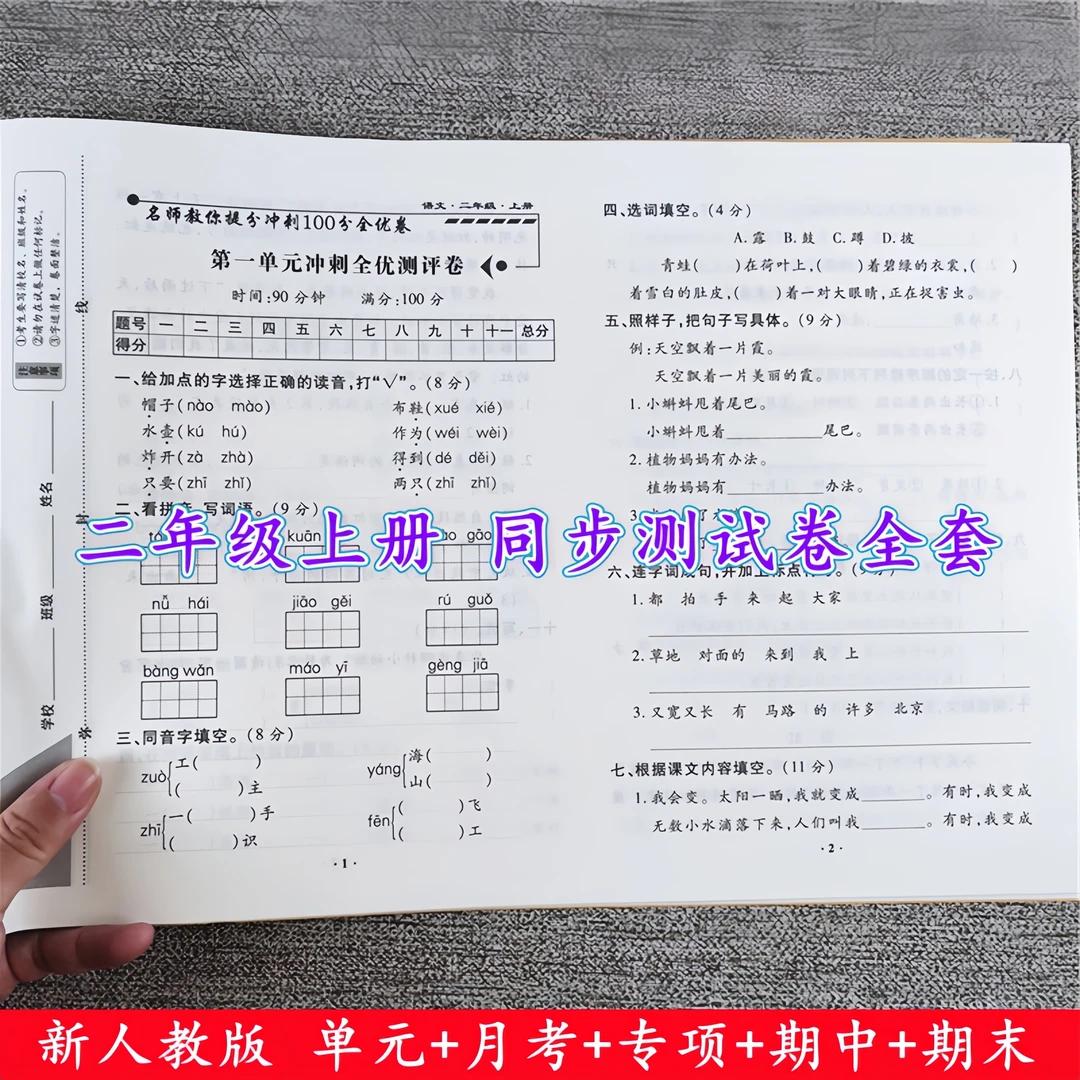 ①考生要写清校名、班级和姓名。
②请勿在试卷上做任何标记。
③字迹清楚，卷面整洁。
注意事项
学校 班级 姓名
线
封
弥
语文·二年级·上册
名师教你提分冲刺100分全优卷
第一单元冲刺全优测评卷
时间:90分钟 满分:100分
题号 一 二 三 四 五 六 七 八 九 十 十一 总分
得分
一、给加点的字选择正确的读音,打“√”。(8分)
帽子(nào mào) 布鞋(xué xié)
水壶(kú hú) 作为(wéi wèi)
炸开(zà zhà) 得到(dé děi)
只要(zhī zhǐ) 两只(zhī zhǐ)
二、看拼音,写词语。(9分)
kuān gāo
nǚ hái jiāo gěi rú guǒ
bàng wǎn máo yī gèng jiā
三、同音字填空。(8分)
zuò 工( ) yáng 海( )
( )主 山( )
zhī 一( )手 fēn ( )飞
( )识 ( )工
·1·
四、选词填空。(4分)
A.露 B.鼓 C.蹲 D.披
青蛙( )在荷叶上,( )着碧绿的衣裳,( )
着雪白的肚皮,( )着一对大眼睛,正在捉害虫。
五、照样子,把句子写具体。(9分)
例:天空飘着一片霞。
天空飘着一片美丽的霞。
1.小蝌蚪甩着尾巴。
小蝌蚪甩着________尾巴。
2.植物妈妈有办法。
植物妈妈有________办法。
3.
六、连字词成句,并加上标点符号。
1.都 拍 手 来 起 大家
2.草地 对面的 来到 我 上
3.又宽又长 有 马路 的 许多 北京
七、根据课文内容填空。(11分)
1.我会变。太阳一晒,我就变成______。有时,我变成
无数小水滴落下来,人们叫我______。有时,我变成
·2·
二年级上册 同步测试卷全套
新人教版 单元+月考+专项+期中+期末